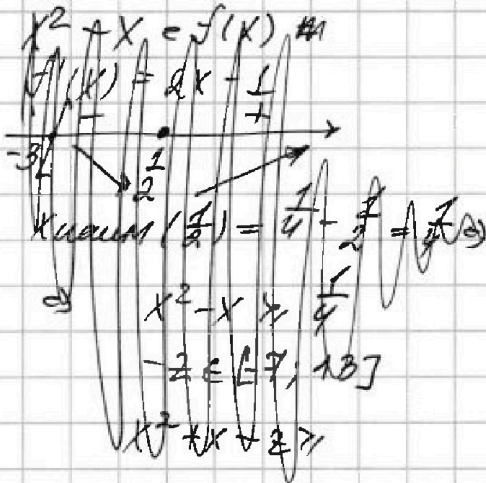 x² - x = f(x)
f'(x) = 2x - 1
- +
-3 1/2
(1/2) = 1/4 - 1/2 =
x² - x ≥ 1/4
-z ∈ [-7; 13]
x² - x - z ≥